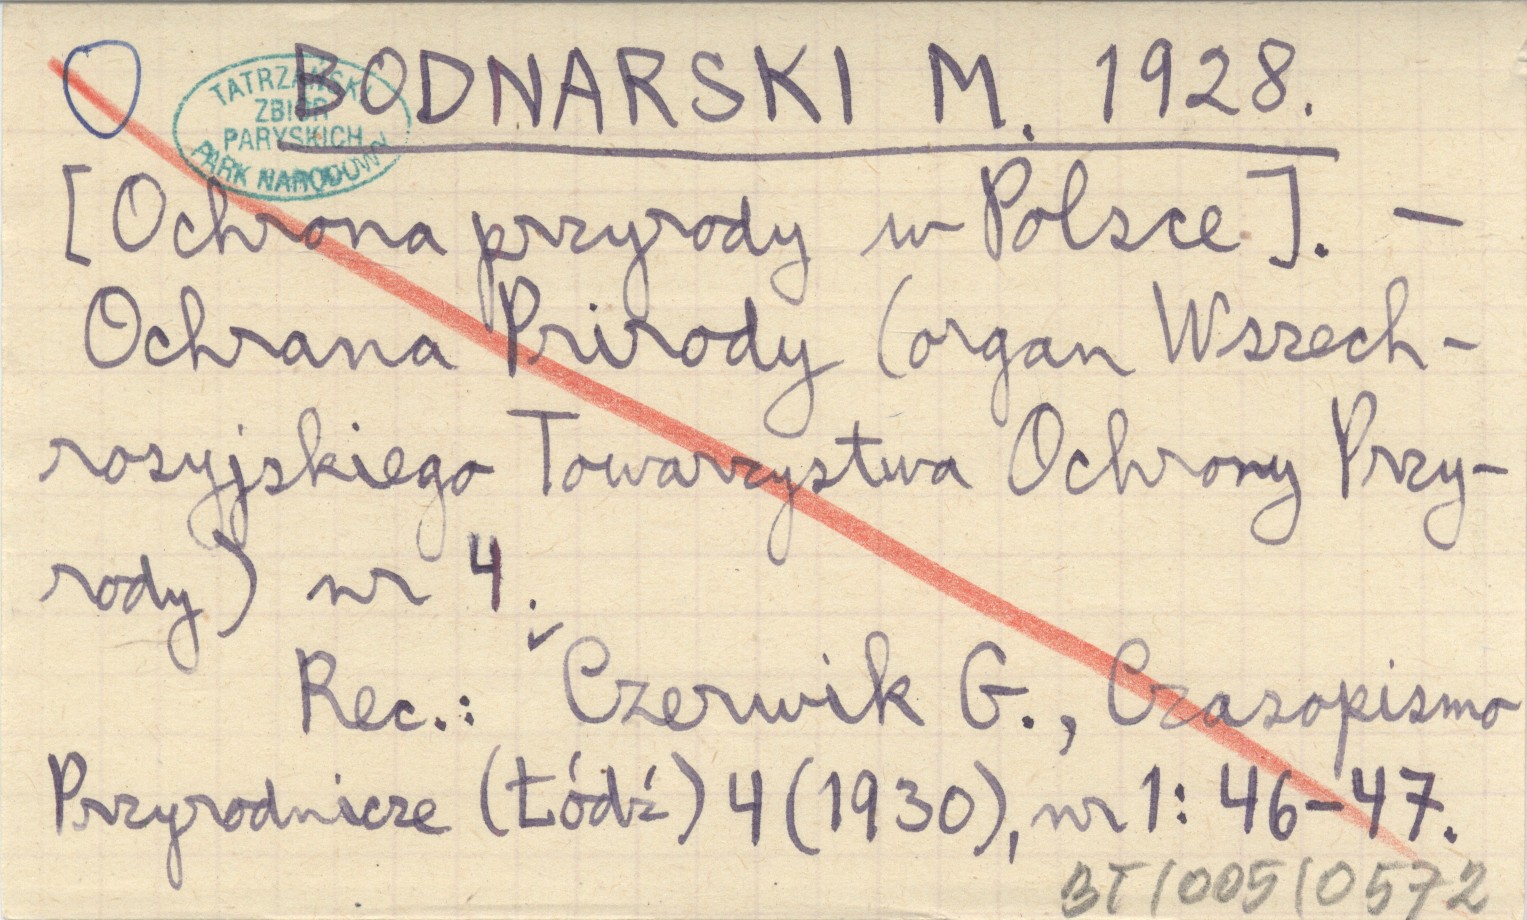 BODNARSKI M. 1928.
TATRZAŃSKI
ZBIÓR
PARYSKICH
PARK NARODOWY
[Ochrona przyrody w Polsce]. —
Ochrana Prirody (organ Wszech-
rosyjskiego Towarzystwa Ochrony Przy-
rody) nr 4.
Rec.: Czerwik G., Czasopismo
Przyrodnicze (Łódź) 4 (1930), nr 1: 46-47.
BT/005/0572